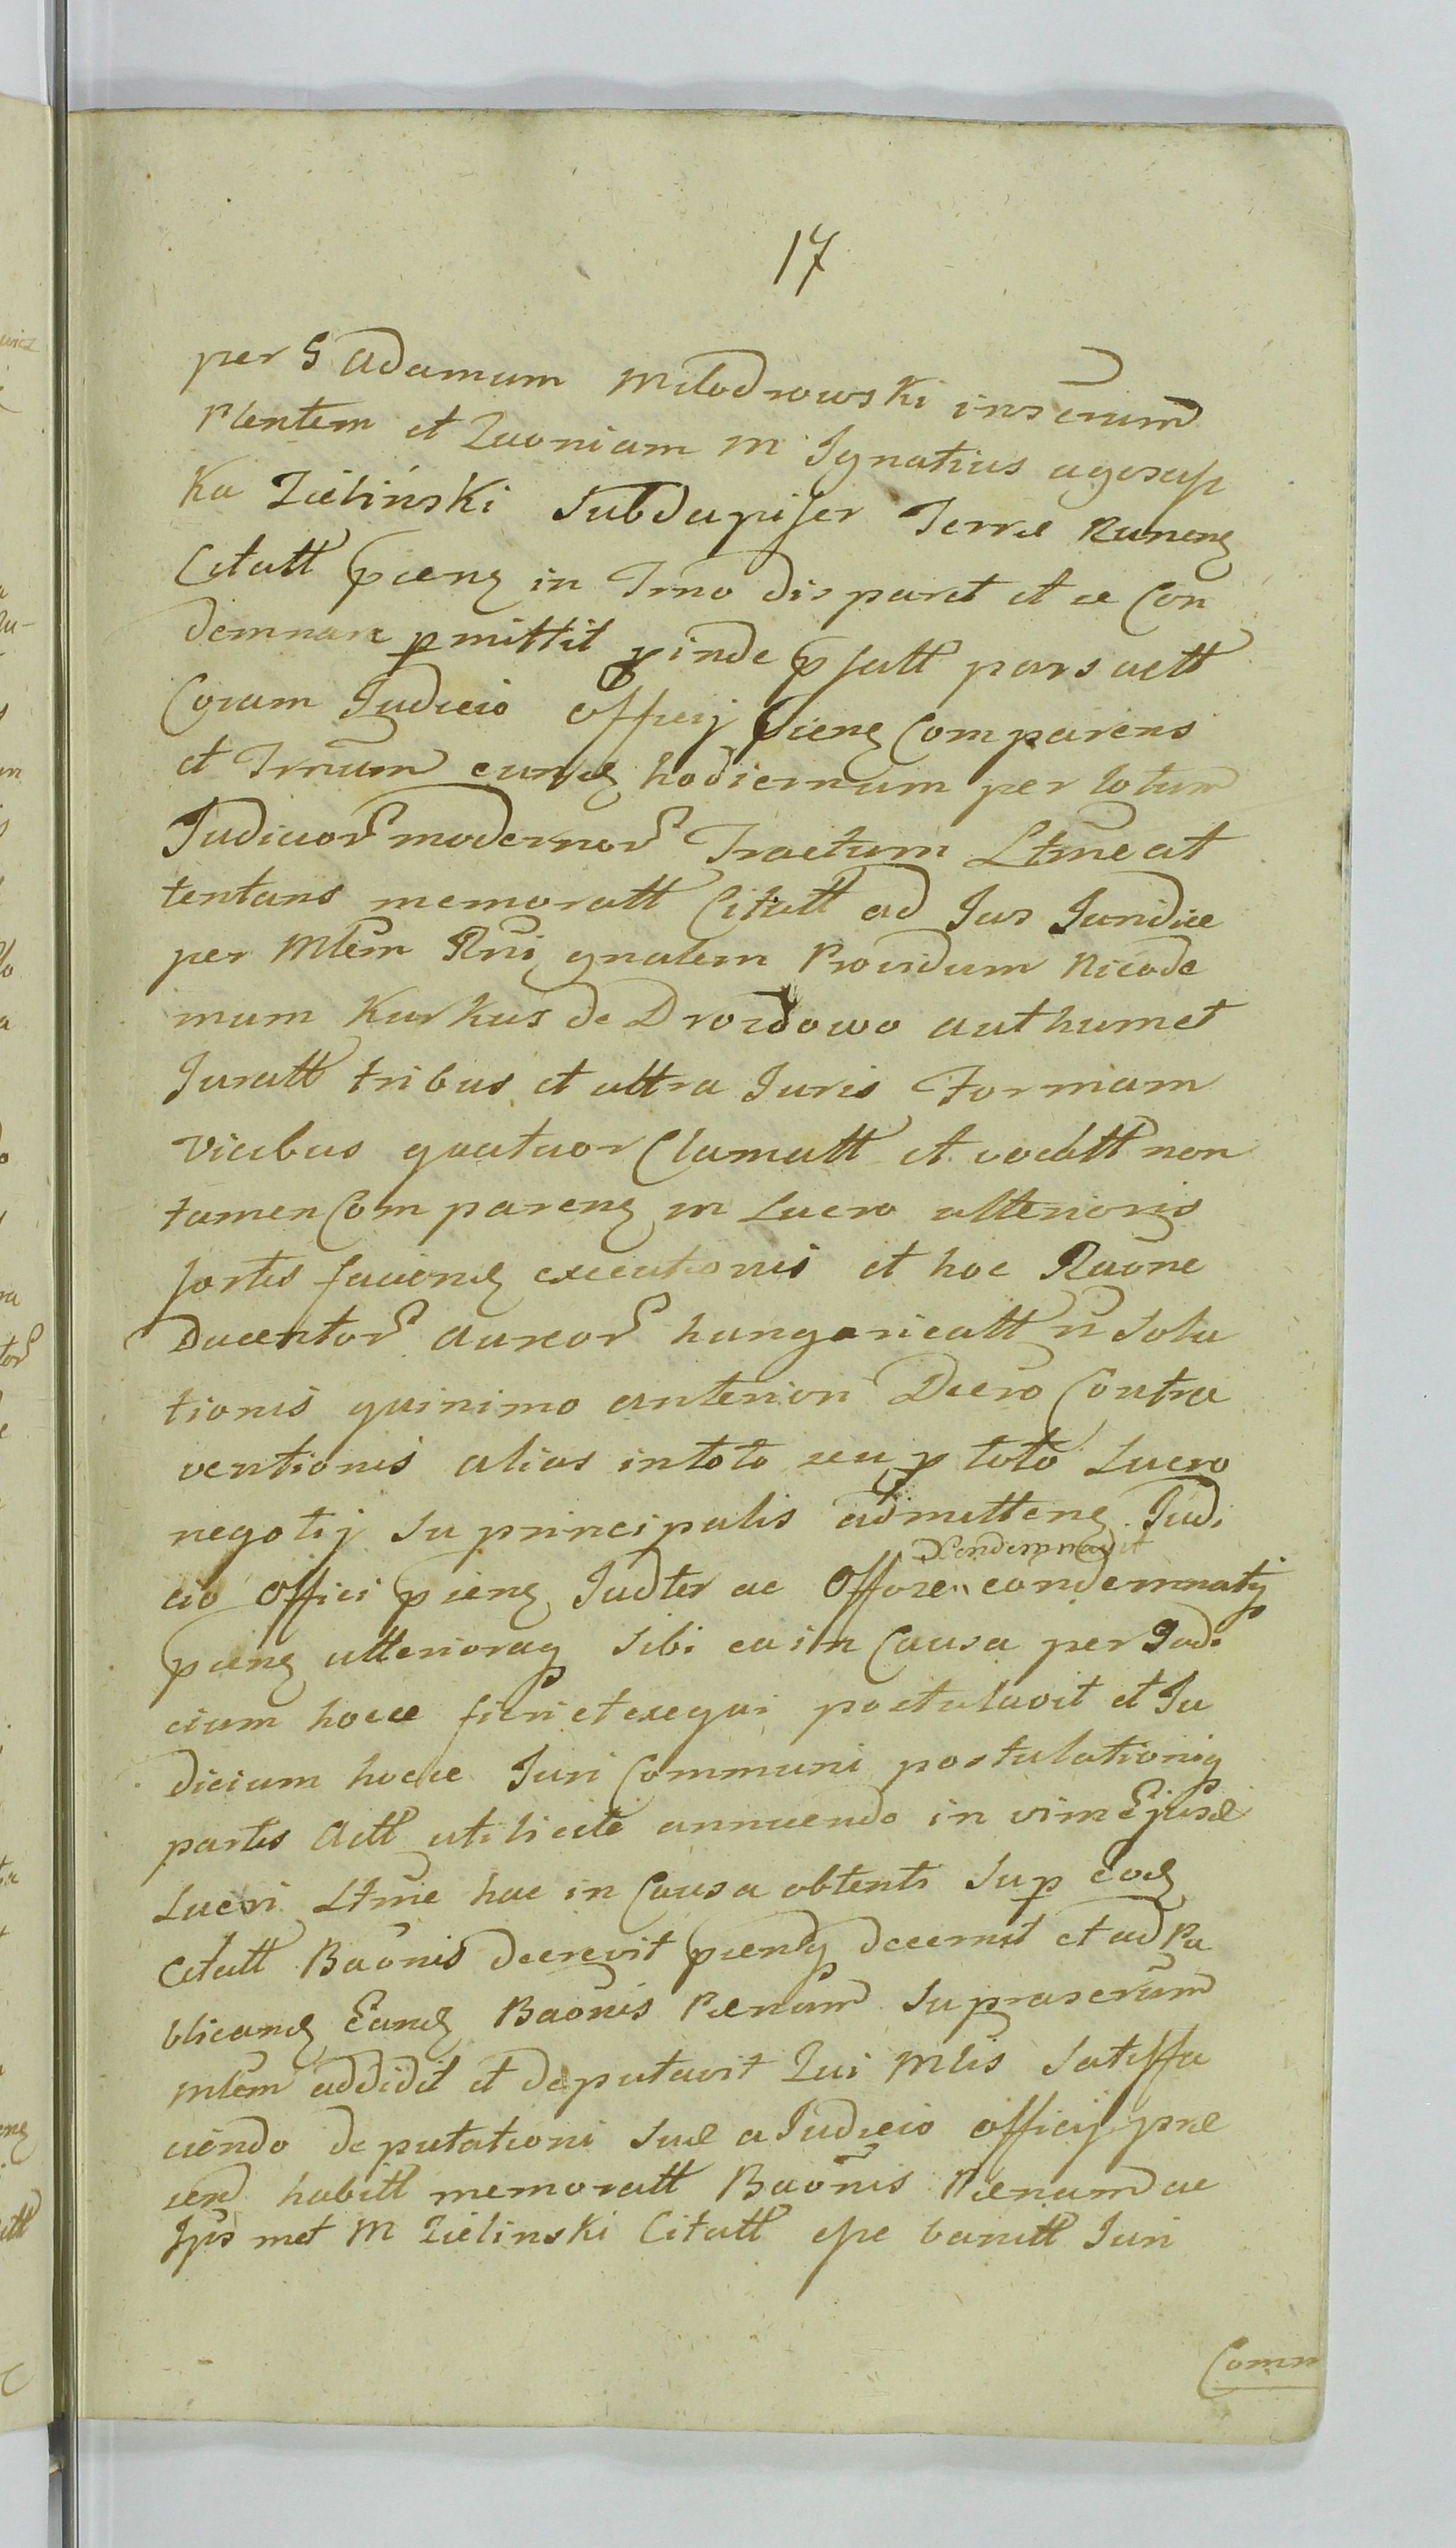 17
per G Adamum Milodrowski inscrum
Plentem et Quoniam M Ignatius
Ka Zieliński Subdapifer Terræ Racneng
Citatt pseng in Trno disparet et se Con
demnare pmittit pinde psatt pars actt
Coram Judicio officij pseng Comparens
et Trnum eundg hodiernum per totum
Judicior modernor Tractum Ltme at
tentans memoratt Citatt ad Jus Juridice
per Mlem Rni gnalem Providum Nicode
mum Kurkus de Drozdowo authumet
Juratt tribus et ultra Juris Formam
vicibus quatuor Clamatt et vocatt non
tamen Compareng in Lucro ulterioris
fortis faciendg executionis et hoc Raone
Ducentor aureor hungaricatt ñ Solu
tionis quinimo anteriori Decro Contra
ventionis alias in toto seu p toto Lucro
negotij su principalis admitteng Judi
Condemnavit
cio Offici pseng Judter ac Offose condemnatq
pseng ulteriorag Sibi ea in Causa per Judi
cium hocce fieri et exequi postulavit et Ju
dicium hocce Juri Communi postulationiq
partis Actt utilicite annuendo in vim Ejusd
Lucri Ltme hac in Causa obtenti Sup eodg
Citatt Baonis decrevit psentq decernit et ad Pu
blicandg Eandg Baonis Pænam Suprascrum
Mlem addidit et deputavit Qui Mlis Satisfa
ciendo deputationi Suæ a Judicio officij præ
send habitt memoratt Baonis Pænam ac
Jps met M Zielinski Citatt esse banitt Juri
Comm